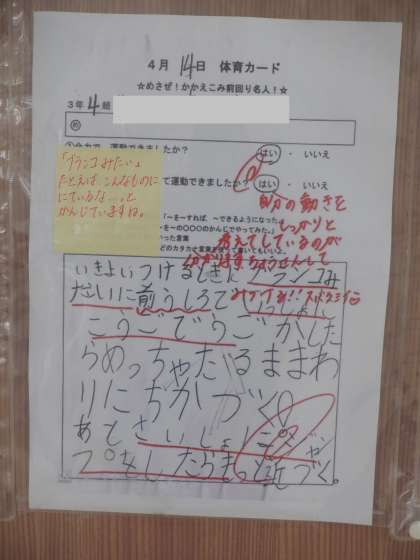 4月 14日 体育カード
☆めざせ！かかえこみ前回り名人！☆
3年 4組
め
運動できましたか？ はい ・ いいえ
「ブランコみたい」
たとえば、こんなものに
にているな…。と
かんじていますね。
て運動できましたか？ はい ・ いいえ
自分の動きを
しっかりと
考えてしているのが
「～をすれば、～できるようになった。
を～の〇〇〇のかんじでやってみた。」
いった言葉
いきよいつけるときに ブランコみ
たいに前うしろで いっしょに
こうごでうごかした
らめっちゃたるままわ
りにちかづく!
あとさいしょにジャン
プもしたらもっと近づく。